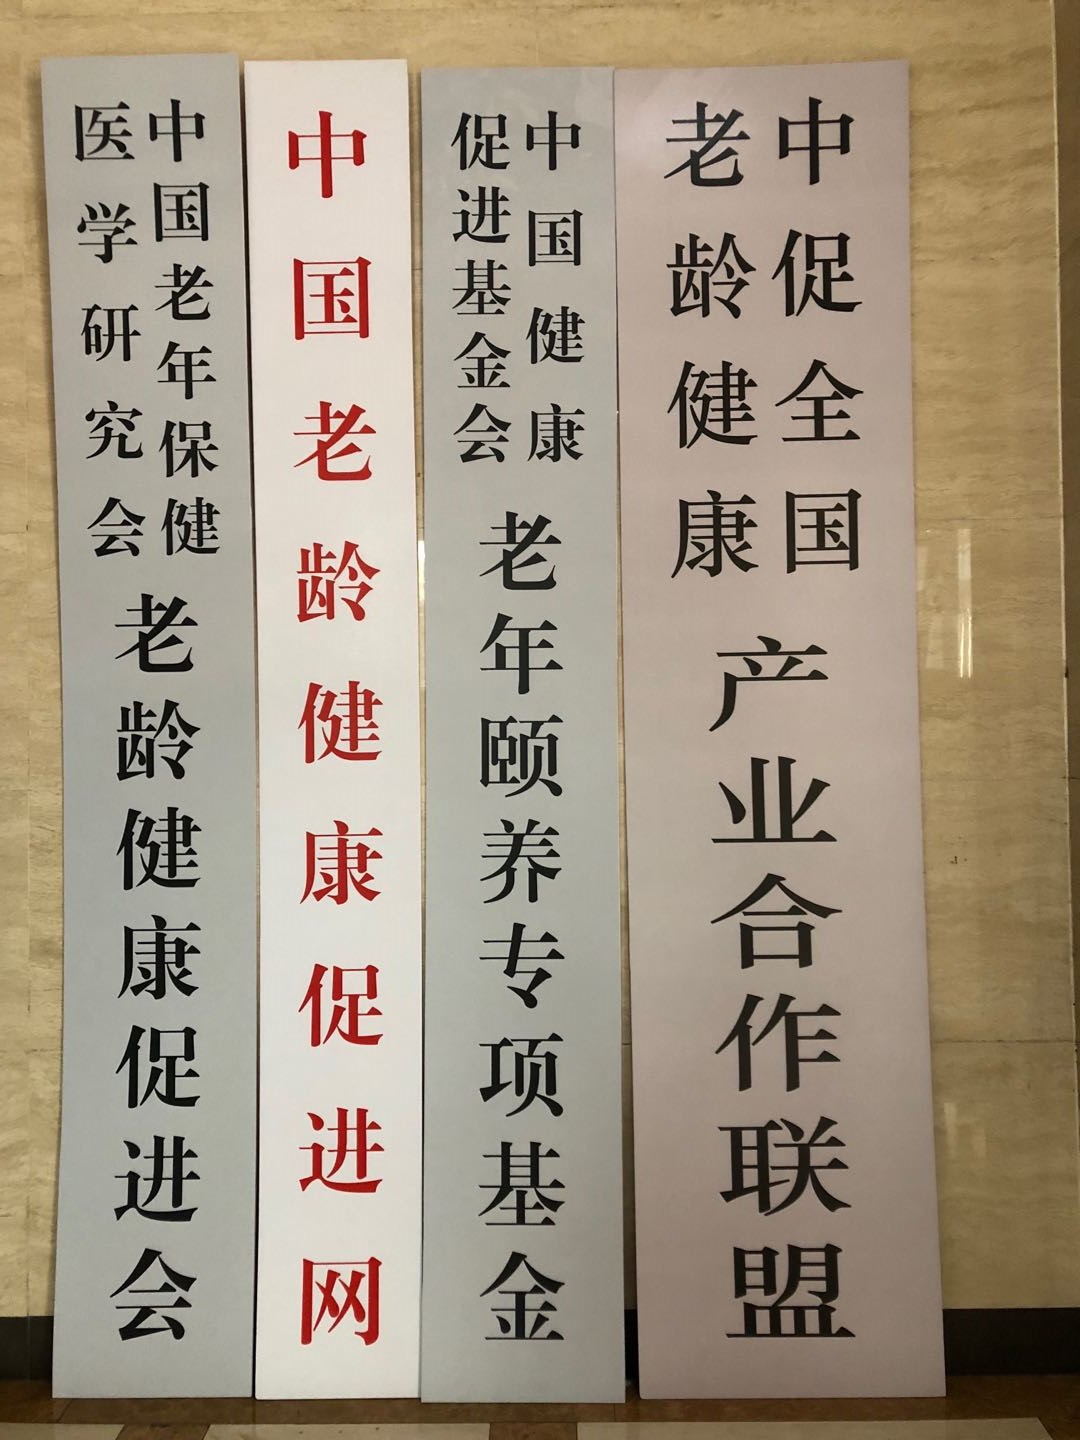 中国老年保健
医学研究会
老龄健康促进会
中国老龄健康促进网
中国健康
促进基金会
老年颐养专项基金
中促全国
老龄健康
产业合作联盟